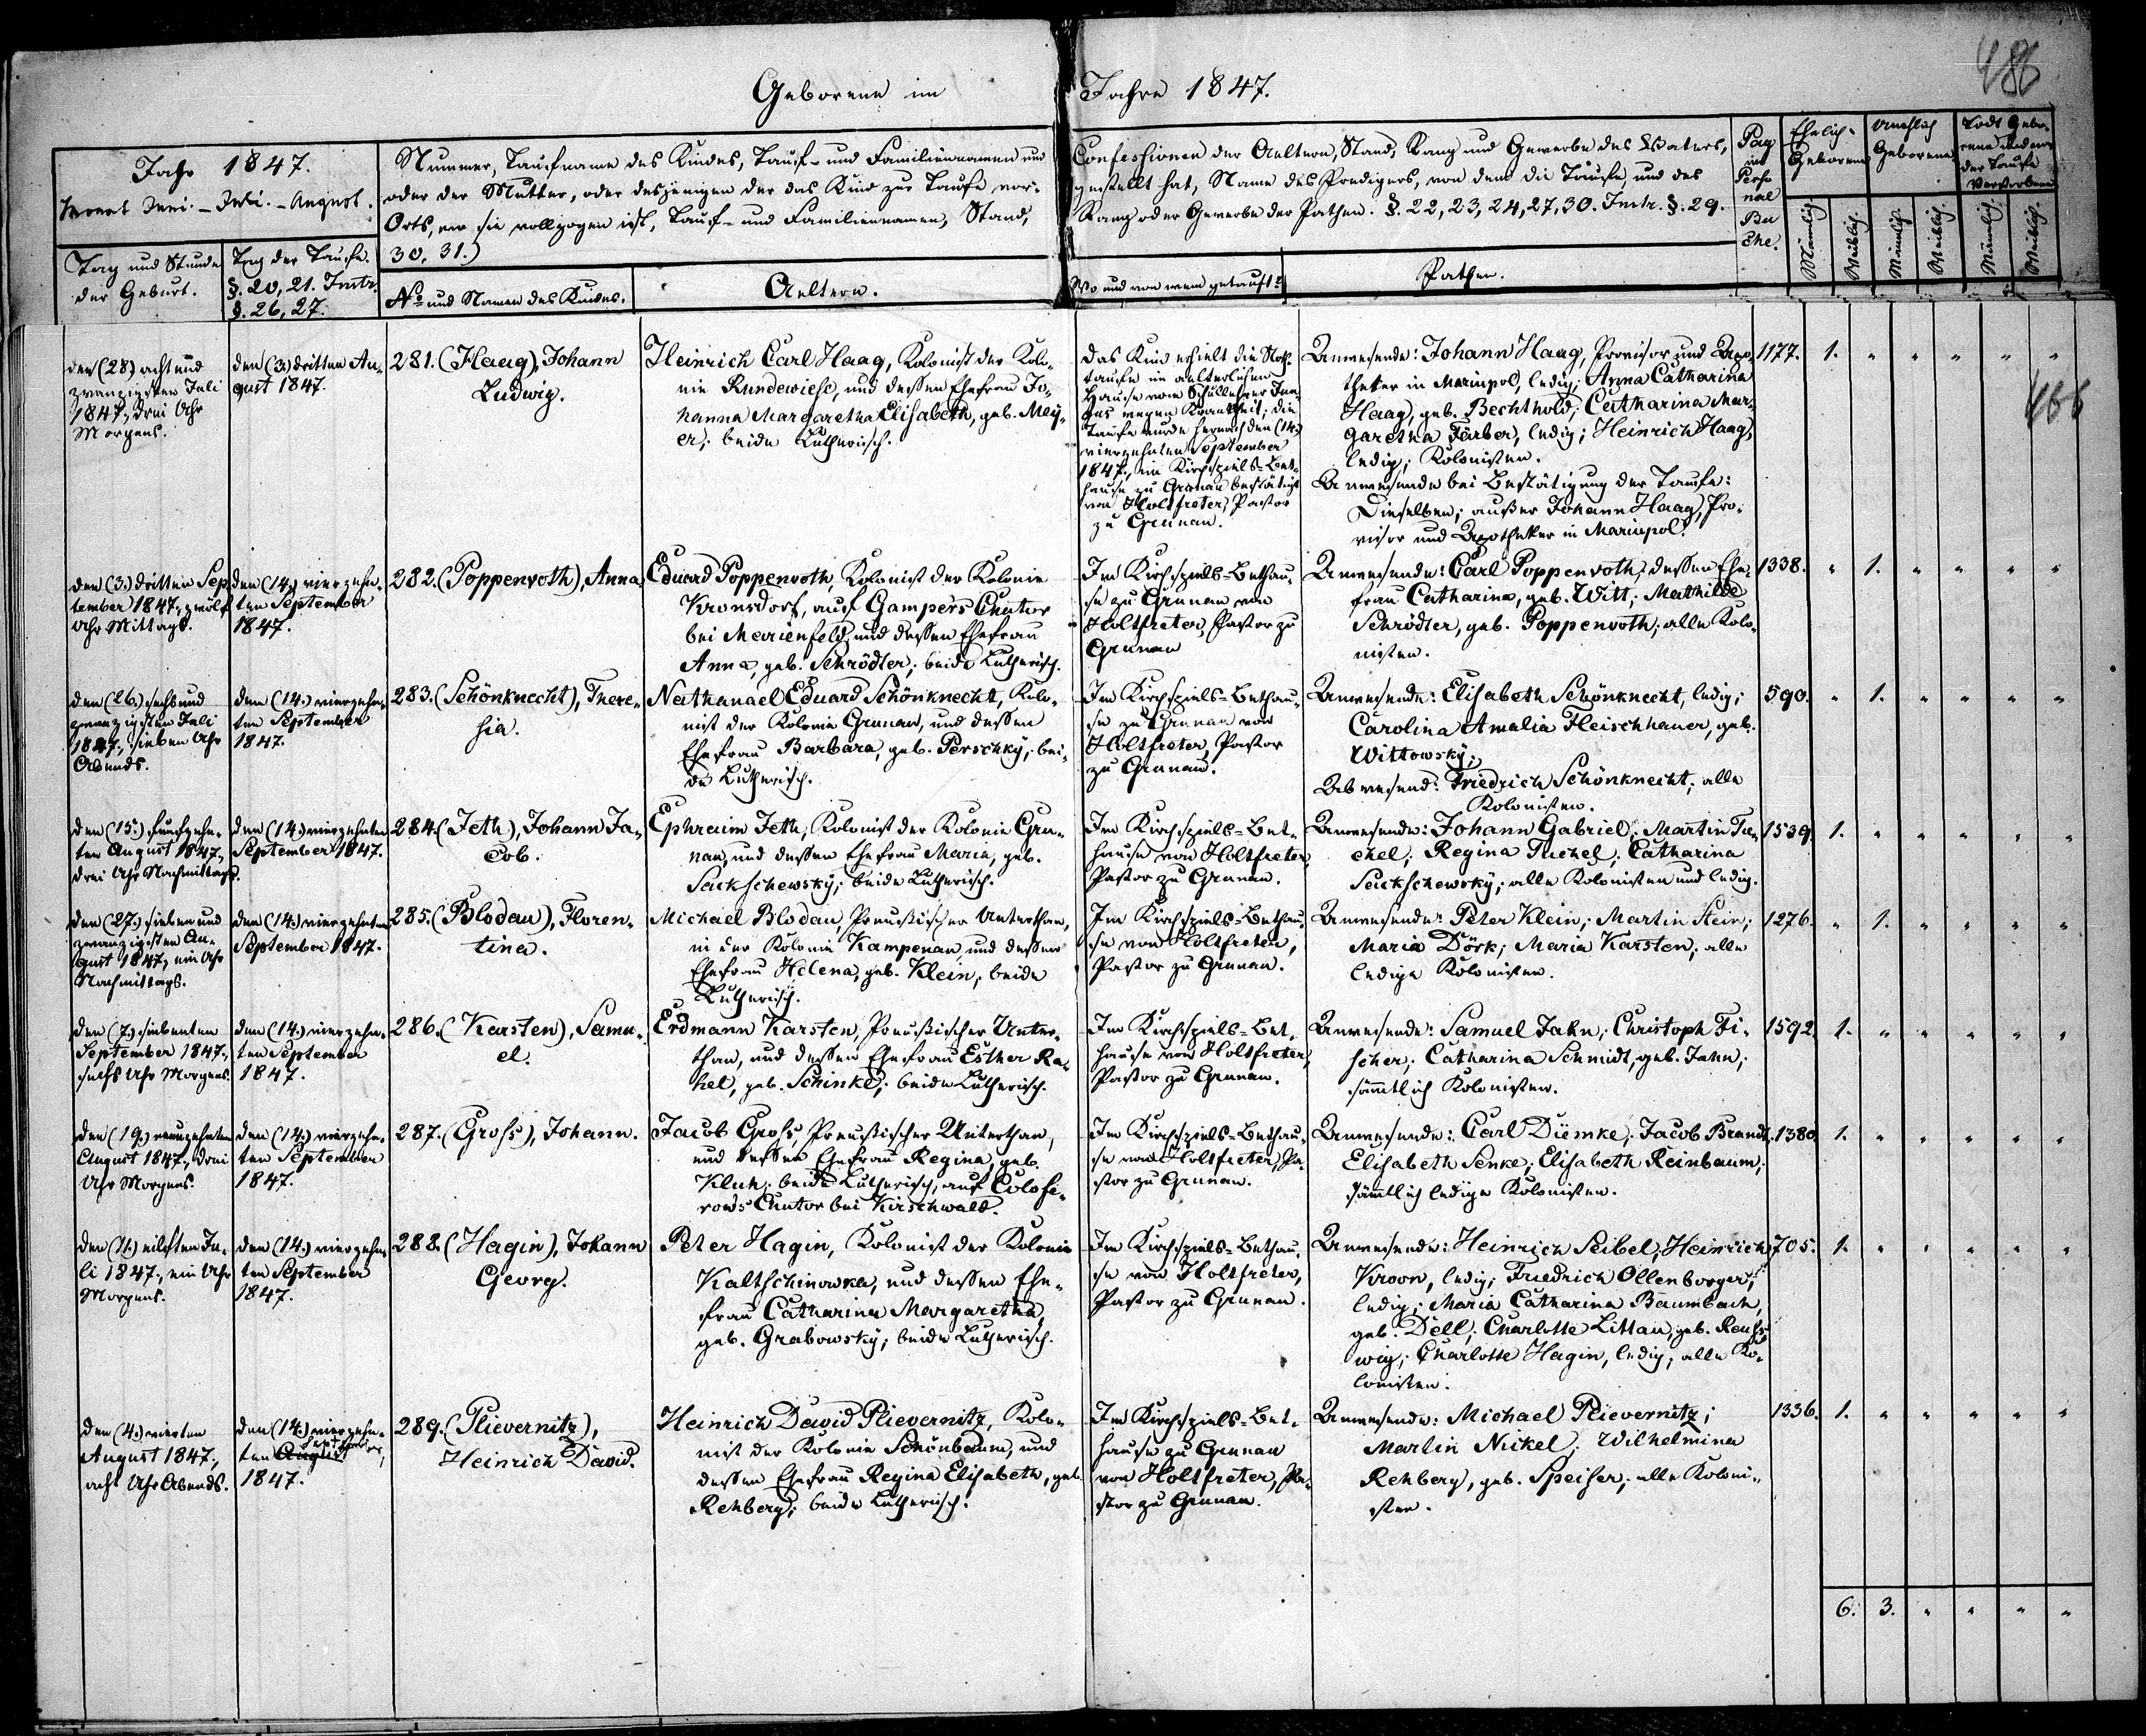 486
Geborene im Jahre 1847.
Jahr 1847.
Monat Juni. – Juli. – August.
Tag und Stunde
der Geburt.
Tag der Taufe.
§. 20, 21. Instr.
§. 26, 27.
Nummer, Taufname des Kindes, Tauf- und Familiennamen und
oder der Mutter, oder desjenigen der das Kind zur Taufe vor-
Orts, wo sie vollzogen ist, Tauf- und Familiennamen, Stand,
30. 31.)
No und Namen des Kindes.
Aeltern.
Confessionen der Aeltern, Stand, Rang und Gewerbe des Vaters,
gestellt hat, Name des Predigers, von dem die Taufe, und des
Rang oder Gewerbe der Pathen. §. 22, 23, 24, 27, 30. Instr. §. 29.
Wo und von wem getauft?
Pathen.
Pag
im
Perso
nal
Bu
che.
Ehelich-
Geborene
Unehlich
Geborene
Todt Gebo-
rene und vor
der Taufe
Verstorbene
Männlich.
Weiblich.
Männlich.
Weiblich.
Männlich.
Weiblich.
den (28) acht und
zwanzigsten Juli
1847., drei Uhr
Morgens.
den (3.) dritten Au-
gust 1847.
281. (Haag), Johann
Ludwig.
Heinrich Carl Haag, Kolonist der Kolo-
nie Rundewiese, und dessen Ehefrau Jo-
hanna Margaretha Elisabeth, geb. Mey-
er; beide Lutherisch.
Das Kind erhielt die Noth-
taufe im aelterlichen
Hause vom Schullehrer
wegen Krankheit; die
Taufe wurde hernach den (14.)
vierzehnten September
1847., im Kirchspiels-Bet-
hause zu Grunau bestätigt
von Holtfreter, Pastor
zu Grunau.
Anwesende: Johann Haag, Provisor und Apo-
theker in Mariupol, ledig; Anna Catharina
Haag, geb. Bechthold; Catharina Mar-
garetha Färber, ledig; Heinrich Haag,
ledig; Kolonisten.
Anwesende bei Bestätigung der Taufe:
Dieselben, außer Johann Haag, Pro-
visor und Apotheker in Mariupol.
1177. 1. " " " " "
466
den (3.) dritten Sep-
tember 1847., zwölf
Uhr Mittags.
den (14.) vierzehn-
ten September
1847.
282. (Poppenroth), Anna
Eduard Poppenroth, Kolonist der Kolonie
Kronsdorf, auf Gampers Chutor
bei Marienfeld und dessen Ehefrau
Anna, geb. Schrödter; beide Lutherisch.
Im Kirchspiels-Bethau-
se zu Grunau von
Holtfreter, Pastor zu
Grunau
Anwesende: Carl Poppenroth, dessen Ehe-
frau Catharina, geb. Witt; Mathilde
Schrödter, geb. Poppenroth; alle Kolo-
nisten.
1338. " 1. " " " "
den (26.) sechs und
zwanzigsten Juli
1847., sieben Uhr
Abends.
den (14.) vierzehn-
ten September
1847.
283. (Schönknecht), There-
sia.
Nathanael Eduard Schönknecht, Kolo-
nist der Kolonie Grunau, und dessen
Ehefrau Barbara, geb. Perschky; bei-
de Lutherisch.
Im Kirchspiels-Bethau-
se zu Grunau von
Holtfreter, Pastor
zu Grunau.
Anwesende: Elisabeth Schönknecht, ledig;
Carolina Amalia Fleischhauer, geb.
Wittowsky;
Abwesend: Friedrich Schönknecht; alle
Kolonisten.
590. " 1. " " " "
den (15.) funfzehn-
ten August 1847.,
drei Uhr Nachmittags.
den (14.) vierzehnten
September 1847.
284. (Jeth), Johann Ja-
cob.
Ephraim Jeth, Kolonist der Kolonie Gru-
nau, und dessen Ehefrau Maria, geb.
Sackschewsky; beide Lutherisch.
Im Kirchspiels-Bet-
hause von Holtfreter,
Pastor zu Grunau.
Anwesende: Johann Gabriel; Martin Tu-
chel; Regina Tuchel; Catharina
Sackschewsky; alle Kolonisten und ledig.
1539. 1. " " " " "
den (27.) sieben und
zwanzigsten Au-
gust 1847., ein Uhr
Nachmittags.
den (14.) vierzehnten
September 1847.
285. (Blodau), Floren-
tina.
Michael Blodau, Preußischer Unterthan,
in der Kolonie Kampenau und dessen
Ehefrau Helena, geb. Klein; beide
Lutherisch.
Im Kirchspiels-Bethau-
se von Holtfreter,
Pastor zu Grunau.
Anwesende: Peter Klein; Martin Stein;
Maria Dörk; Maria Karsten; alle
ledige Kolonisten.
1276. " 1. " " " "
den (7.) siebenten
September 1847.,
sechs Uhr Morgens.
den (14.) vierzehn-
ten September
1847.
286. (Karsten), Samu-
el.
Erdmann Karsten, Preußischer Unter-
than, und dessen Ehefrau Esther Ra-
hel, geb. Schinke; beide Lutherisch.
Im Kirchspiels-Bet-
hause von Holtfreter,
Pastor zu Grunau.
Anwesende: Samuel Jahn; Christoph Fi-
scher; Catharina Schmidt, geb. Jahn;
sämmtlich Kolonisten.
1592. 1. " " " " "
den (19.) neunzehnten
August 1847., drei
Uhr Morgens.
den (14.) vierzehn-
ten September
1847.
287. (Gross), Johann.
Jacob Gross, Preußischer Unterthan,
und dessen Ehefrau Regina, geb.
Kluk; beide Lutherisch, auf Colose-
rows Chutor bei Kirschwald.
Im Kirchspiels-Bethau-
se von Holtfreter, Pa-
stor zu Grunau.
Anwesende: Carl Diemke; Jacob Brandt;
Elisabeth Senke; Elisabeth Reinbaum;
sämmtlich ledige Kolonisten.
1380. 1. " " " " "
den (11.) eilften Ju-
li 1847., ein Uhr
Morgens.
den (14.) vierzehn-
ten September
1847.
288. (Hagin), Johann
Georg.
Peter Hagin, Kolonist der Kolonie
Kaltschinowka, und dessen Ehe-
frau Catharina Margaretha,
geb. Grabowsky; beide Lutherisch.
Im Kirchspiels-Bethau-
se von Holtfreter,
Pastor zu Grunau.
Anwesende: Heinrich Seibel; Heinrich
Kroon, ledig; Friedrich Ollenborger,
ledig; Maria Catharina Baumbach,
geb. Dell; Charlotte Littau, geb.
wig; Charlotte Hagin, ledig; alle Ko-
lonisten.
705. 1. " " " " "
den (4.) vierten
August 1847.,
acht Uhr Abends.
den (14.) vierzehn-
ten August September,
1847.
289. (Plievernitz),
Heinrich David.
Heinrich David Plievernitz, Kolo-
nist der Kolonie Schönbaum, und
dessen Ehefrau Regina Elisabeth, geb.
Rehberg; beide Lutherisch.
Im Kirchspiels-Bet-
hause zu Grunau
von Holtfreter, Pa-
stor zu Grunau.
Anwesende: Michael Plievernitz;
Martin Nickel; Wilhelmina
Rehberg, geb. Speiser; alle Koloni-
sten.
1336. 1. " " " " "
6. 3. " " " "